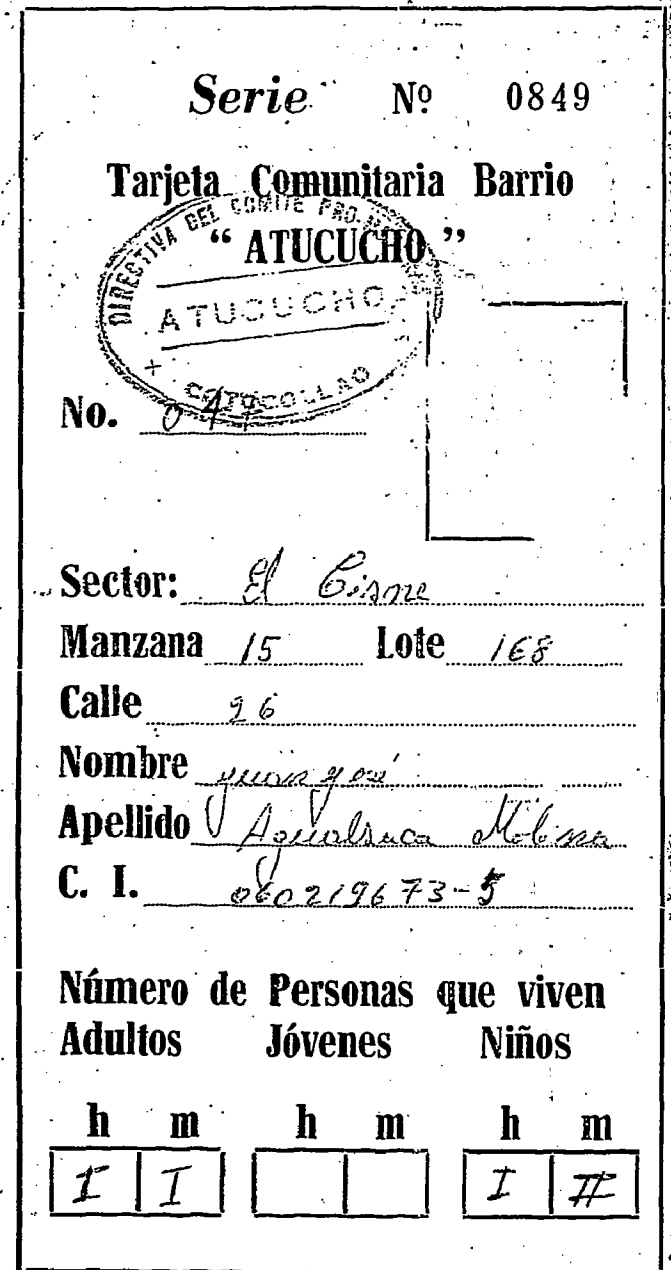 Serie Nº 0849
Tarjeta Comunitaria Barrio
“ ATUCUCHO ”
DIRECTIVA DEL COMITE PRO.
ATUCUCHO
COTOCOLLAO
No. 04
Sector: El Cisne
Manzana 15 Lote 168
Calle 26
Nombre José
Apellido Molina
C. I. 060219673-5
Número de Personas que viven
Adultos Jóvenes Niños
h m h m h m
I I I II